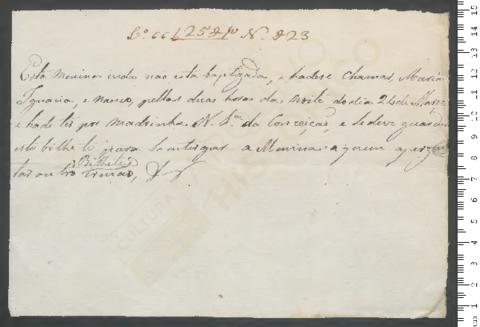 Nº 823
Esta menina inda não está baptizada, e hadese chamar Maria
Ignacia, e naseo pellas duas horas da noite do dia 24 de Março
e hade ter por madrinha N. Srª da Conceiçaõ, e se deve guardar
este bilhete para se entregar a Menina a quem aprezen
tar outro Bilhete
CULTURA